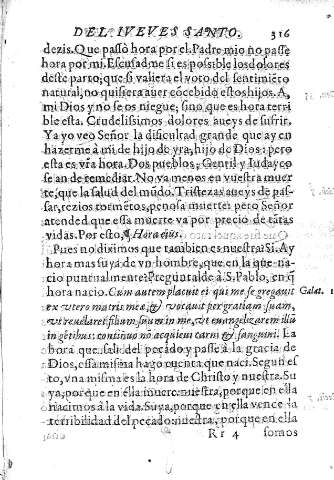 DEL IVEVES SANTO. 316
dezis. Que passò hora por el. Padre mio no passe
hora por mi. Escusadme si es possible los dolores
deste parto; que si valiera el voto del sentimiẽto
natural, no quisiera auer cõcebido estos hijos. A,
mi Dios y no se os niegue; sino que es hora terri
ble esta. Crudelissimos dolores aueys de sufrir.
Ya yo veo Señor la dificultad grande que ay en
hazerme à mi de hijo de yra, hijo de Dios: pero
esta es vr̃a hora. Dos pueblos, Gentil y Iudayco
se an de remediar. No va menos en vuestra muer
te, que la salud del mũdo. Tristezas aueys de pas-
sar, rezios tormẽtos, penosa muerte: pero Señor
atended que essa muerte va por precio de tãtas
vidas. Por esto, ¶ Hora eius.
Pues no diximos que tambien es nuestra? Si. Ay
hora mas suya de vn hombre, que en la que na-
cio puntualmente? Preguntalde à S. Pablo, en q̃
hora nacio. Cum autem placuit ei qui me segregauit Galat. 1
ex vtero matris meæ, & vocauit per gratiam suam,
vt reuelaret filium suum in me, vt euangelizarem illũ
in gẽtibus: continuò nõ acquieui carni & sanguini. La
hora que sali del pecado y passè à la gracia de
Dios, essa misma hago cuenta que naci. Segun es
to, vna misma es la hora de Christo y nuestra. Su
ya, porque en ella muere: nuestra, porque en ella
nacimos à la vida. Suya, porque en ella vence la
terribilidad del pecado: nuestra, porque en ella
Rr 4 somos